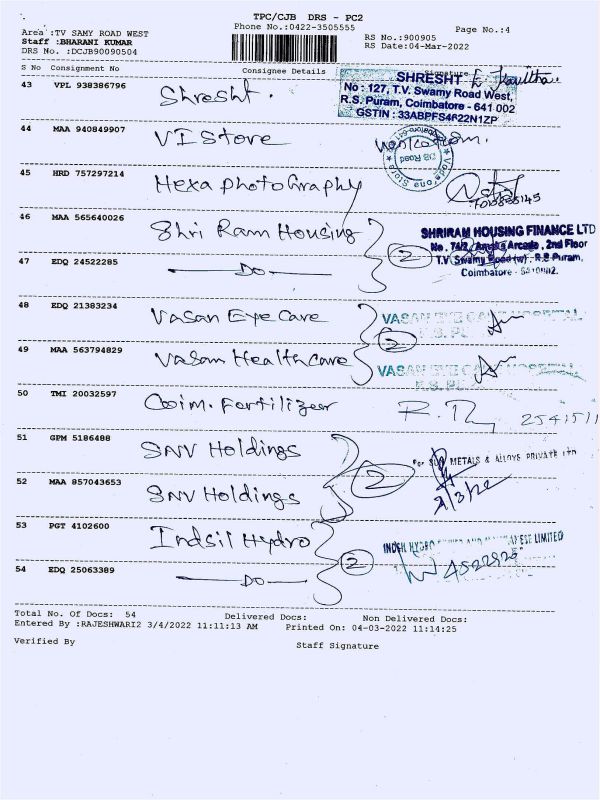 TPC/CJB DRS - PC2
Phone No.:0422-3505555
Page No.:4
Area :TV SAMY ROAD WEST
Staff :BHARANI KUMAR
DRS No. :DCJB90090504
RS No.:900905
RS Date:04-Mar-2022
S No Consignment No Consignee Details Signature
43 VPL 938386796 Shresht.
SHRESHT
No : 127, T.V. Swamy Road West,
R.S. Puram, Coimbatore - 641 002
GSTIN : 33ABPFS4622N1ZP
44 MAA 940849907 VI Store
Vodafone Store
DB Road
45 HRD 757297214 Hexa photography
46 MAA 565640026 Shri Ram Housing 2
SHRIRAM HOUSING FINANCE LTD
Arcade, 2nd Floor
T.V. Swamy Road (w), R.S Puram,
Coimbatore -
47 EDQ 24522285 — DO —
48 EDQ 21383234 Vasan Eye Care 2
VASAN EYE CARE HOSPITAL
49 MAA 563794829 Vasan Healthcare
VASAN EYE CARE HOSPITAL
50 TMI 20032597 Coim. Fertilizer
51 GPM 5186488 SNV Holdings 2
METALS & ALLOYS PRIVATE LTD
52 MAA 857043653 SNV Holdings
53 PGT 4102600 Indsil Hydro 2
INDSIL HYDRO POWER AND MANGANESE LIMITED
54 EDQ 25063389 — DO —
Total No. Of Docs: 54 Delivered Docs: Non Delivered Docs:
Entered By :RAJESHWARI2 3/4/2022 11:11:13 AM Printed On: 04-03-2022 11:14:25
Verified By Staff Signature